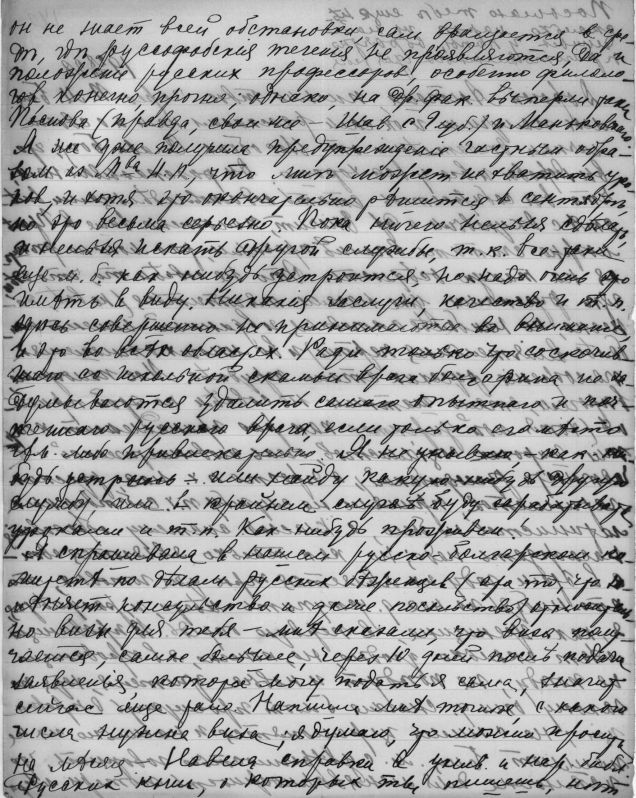 он не знает всей обстановки сам вращается в сре-
де, где руссофобския течения не проявляются, да и
положение русских профессоров, особенно филоло-
гов конечно прочнее; однако, на фак. выперли уже
Попова (правда, свои же – с ) и
А же уже получила предупреждение частным обра-
зом из Н.П., что мне может не хватить уро-
ков и хотя это окончательно решится в сентябре,
но это весьма серьезно. Пока ничего нельзя сделать,
и нельзя искать другой службы, т.к. все же
еще м. б. как нибудь устроится, но надо очень это
иметь в виду. Никакия заслуги, качество и т.п.
здесь совершенно не принимаются во внимание,
и это во всех областях. Ради только что соскочив-
шаго со школьной скамьи врача болгарина не за-
думываются удалить самаго опытнаго и поч-
теннаго русскаго врача, если только его место
мало привлекательно. Я не унываю – как ни-
будь устроюсь – или найду какую нибудь другую
службу или в крайнем случае буду зарабатывать
уроками и т.п. Как нибудь проживем!
Я спрашивала в нашем русско-болгарском ко-
митете по делам русских беженцев (это то, что за-
меняет консульство и даже посольство) относитель-
но визы для тебя – мне сказали, что виза полу-
чается, самое большее, через 10 дней после подачи
заявления, которое могу подать я сама, значит
сейчас еще рано. Напиши мне точно с какого
числа нужна виза; я думаю, что можно просить
на месяц. Навела справки в унив. и нар. библ.
Русских книг, о которых ты пишешь, нет